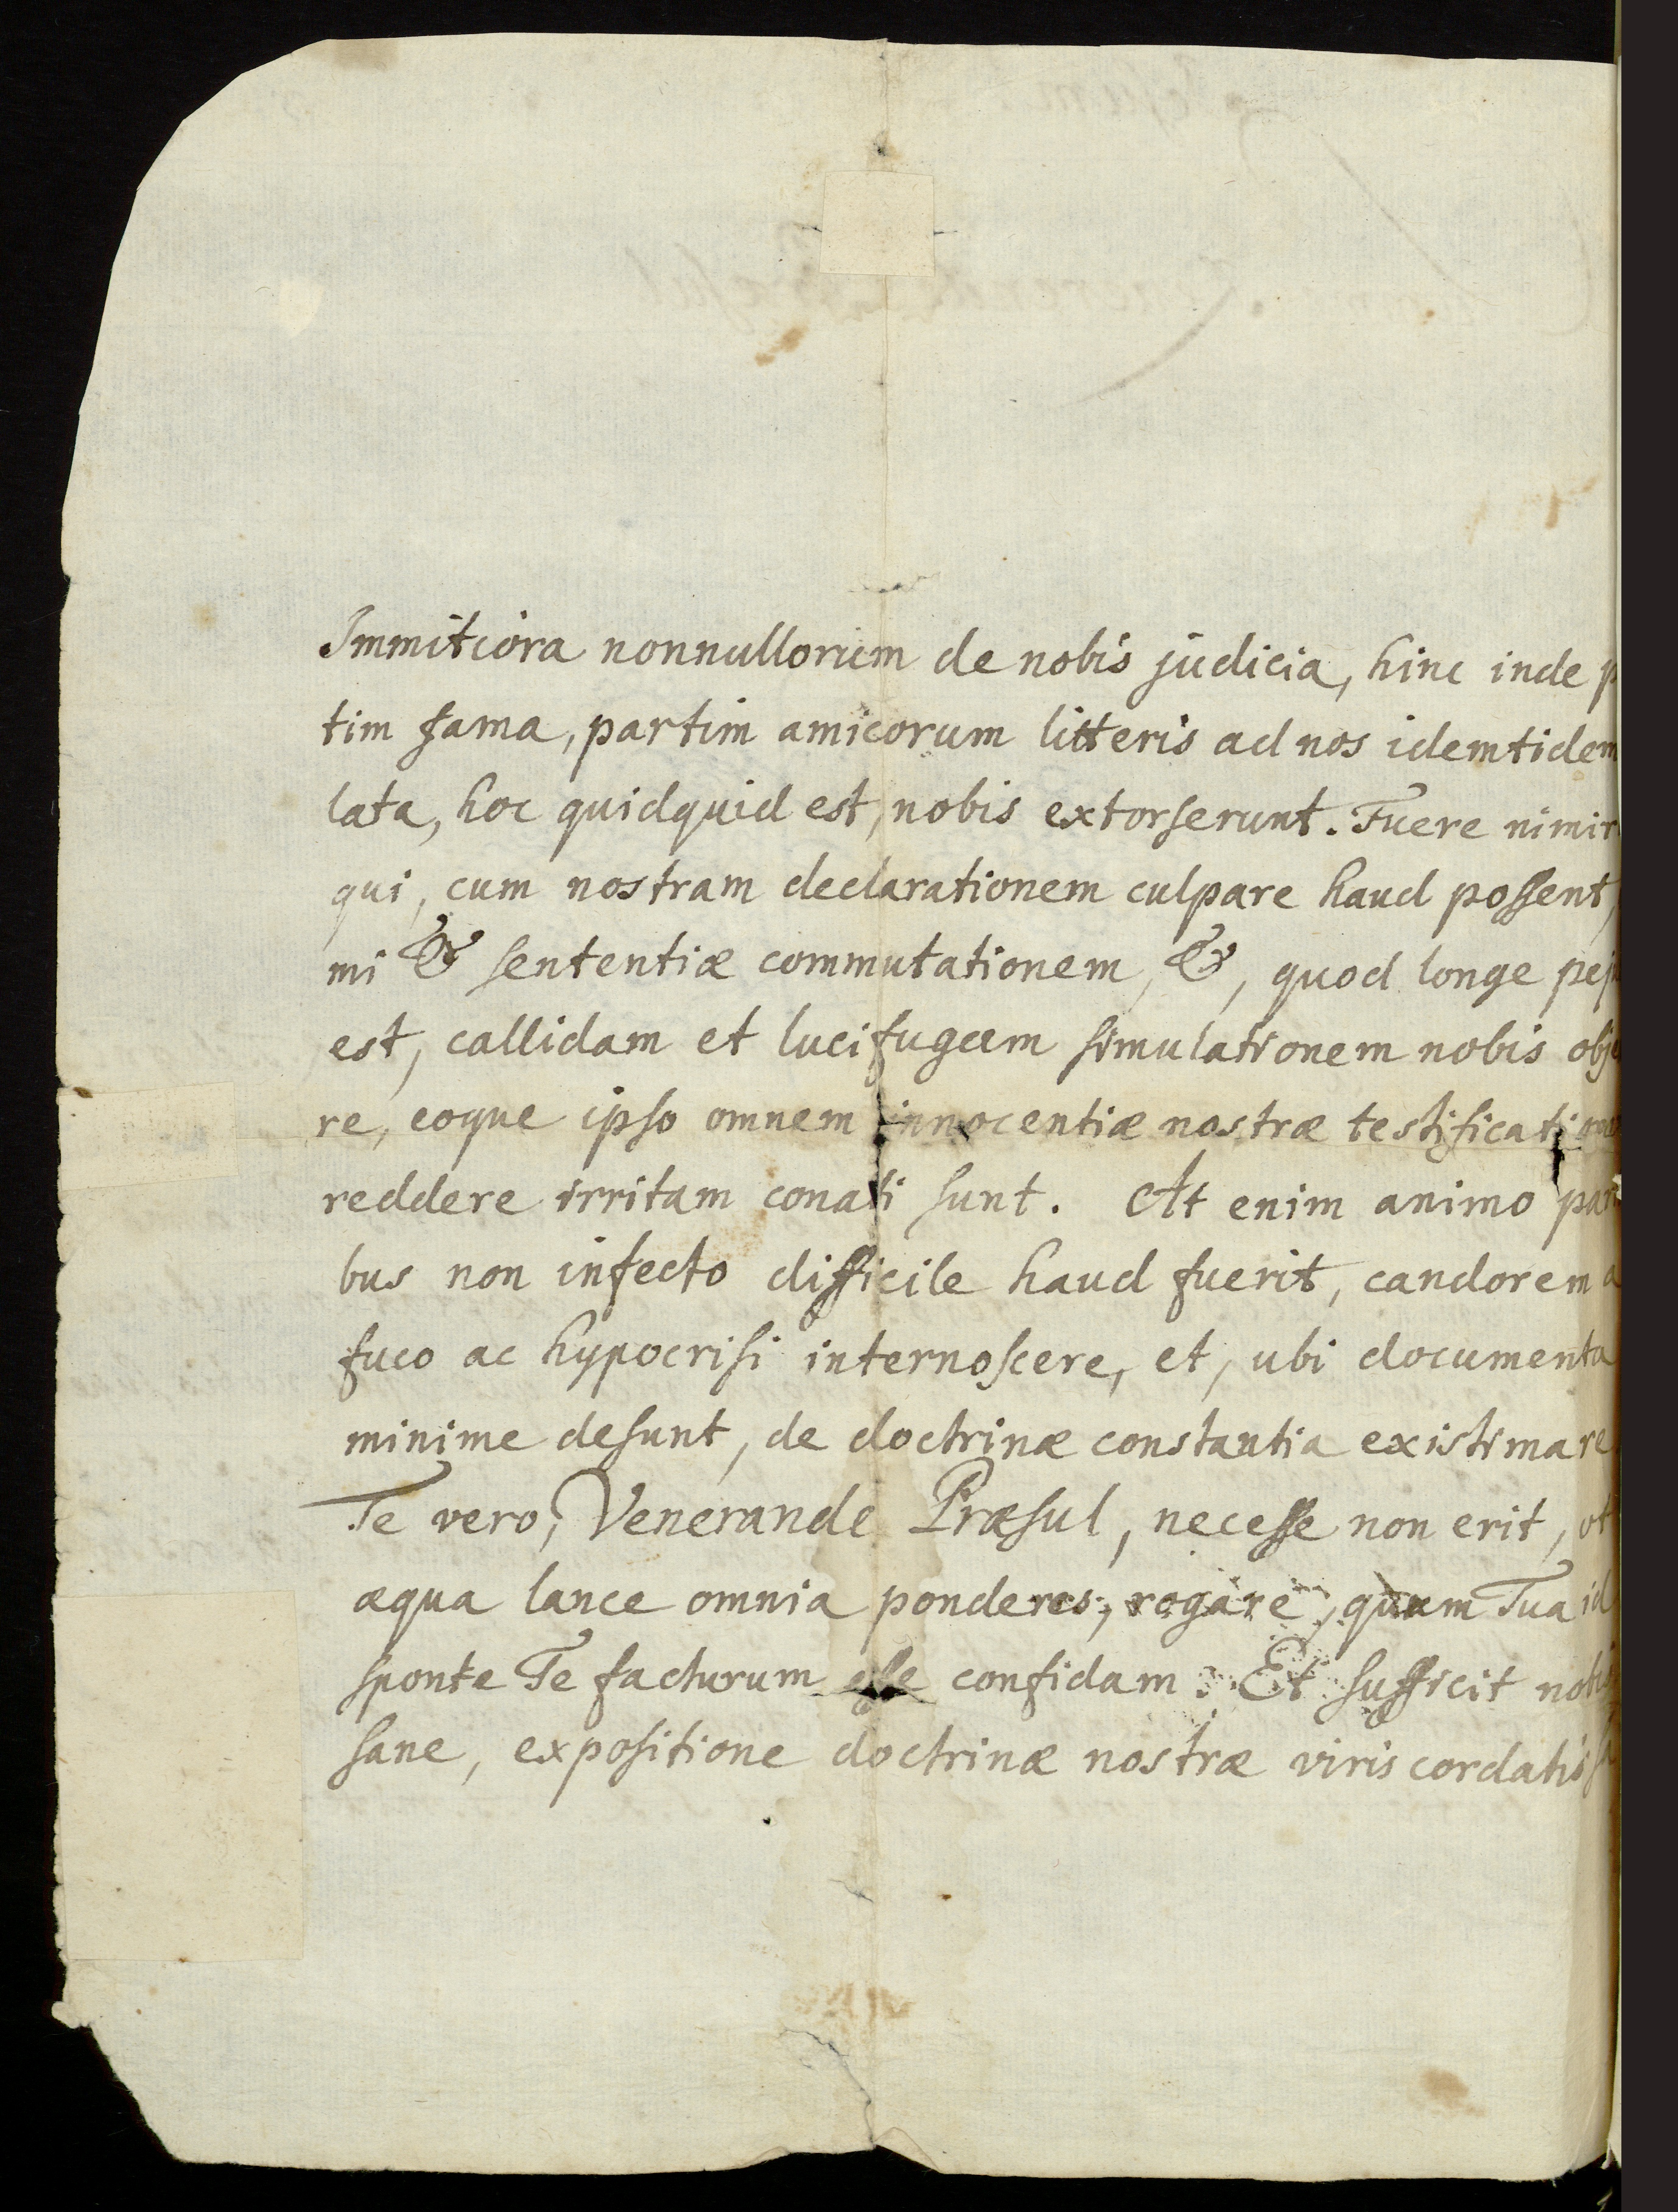 Immitiora nonnullorum de nobis judicia, hinc inde p
tim fama, partim amicorum litteris ad nos idemtidem
lata, hoc quidquid est, nobis extorserunt. Fuere nimir
qui, cum nostram declarationem culpare haud possent,
mi & sententiæ commutationem, &, quod longe pej
est, callidam et lucifugam simulationem nobis obje
re, eoque ipso omnem innocentiæ nostræ testification
reddere irritam conati sunt. At enim animo parti
bus non infecto difficile haud fuerit, candorem a
fuco ac hypocrisi internoscere, et, ubi documenta
minime desunt, de doctrinæ constantia existimare
Te vero, Venerande Præsul, necesse non erit, ut
æqua lance omnia ponderes, rogare, quum Tua id
sponte Te facturum esse confidam. Et sufficit nobis
sane, expositione doctrinæ nostræ viris cordatis